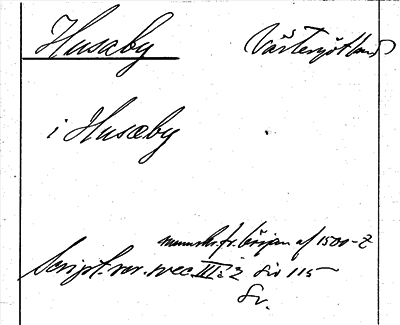 Husaby Västergötland
i Husæby
manuskr. fr. början af 1500-t
Script. rer. svec. III:2 sid 115
Sv.